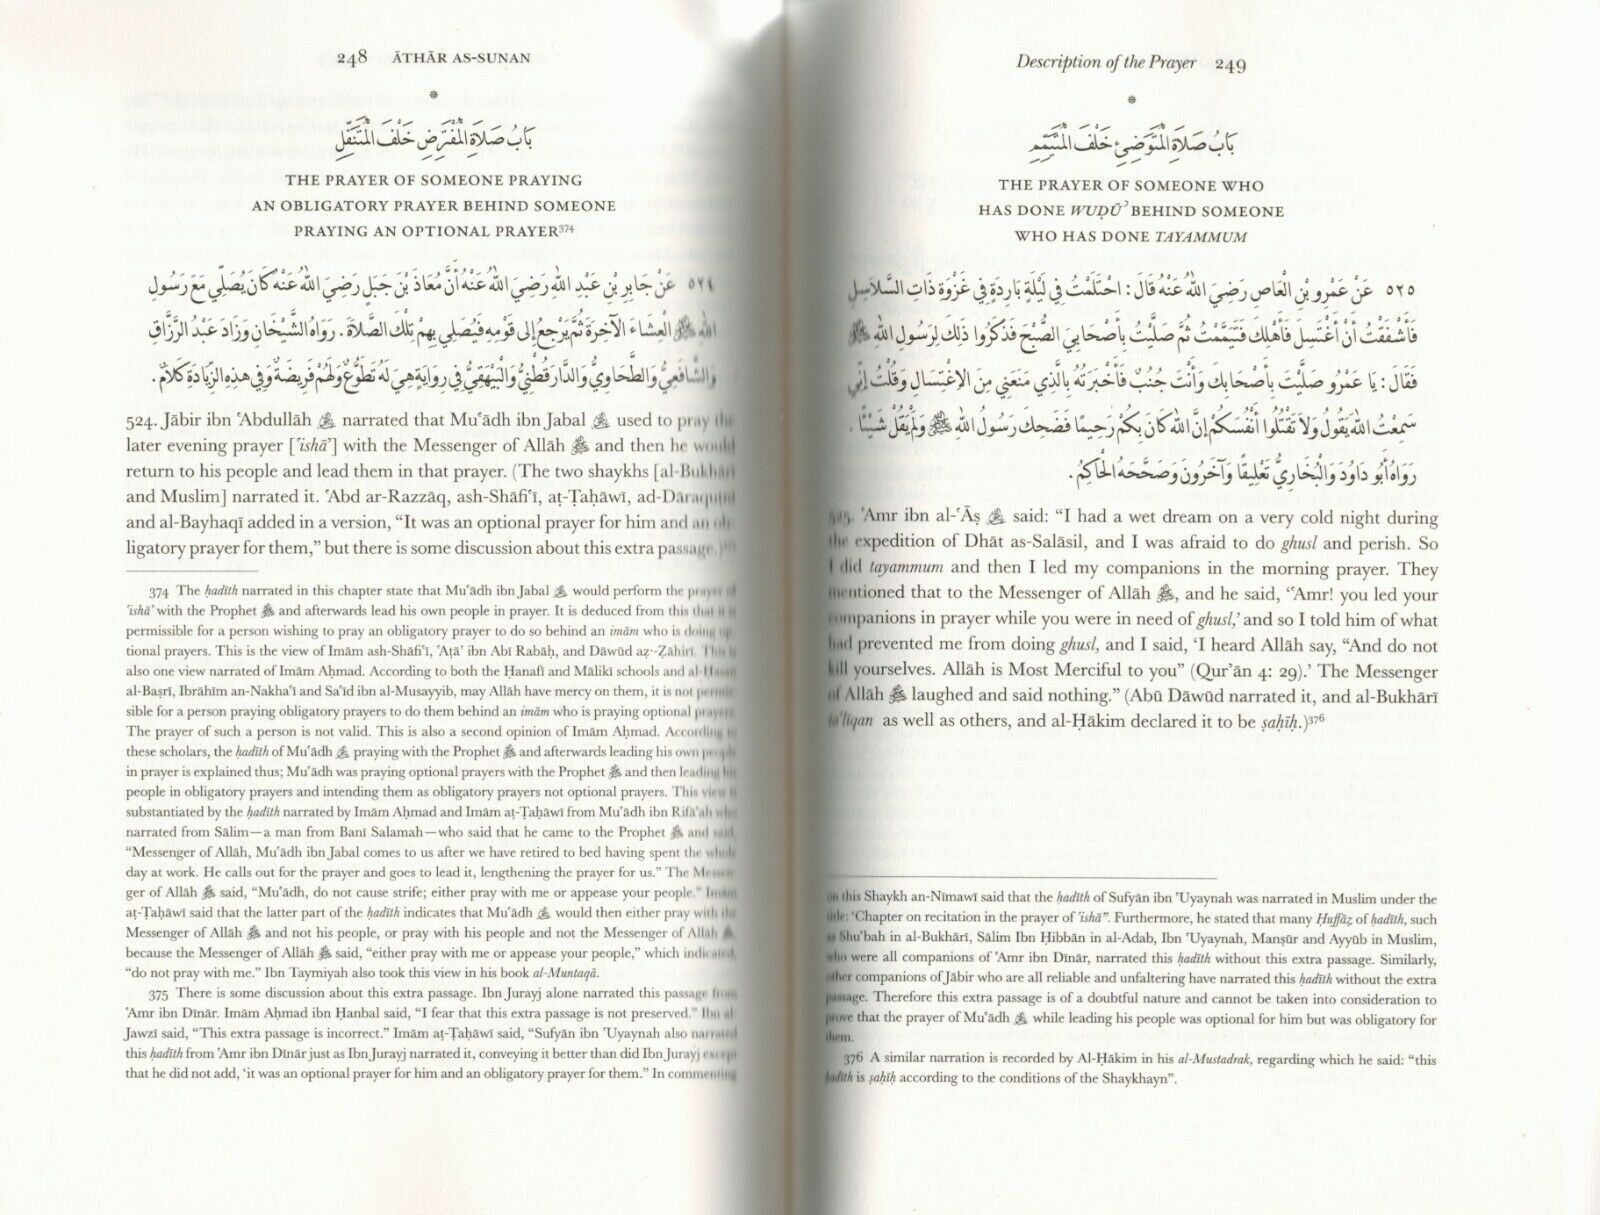 248 ĀTHĀR AS-SUNAN
بَابُ صَلَاةِ الْمُفْتَرِضِ خَلْفَ الْمُتَنَفِّلِ
THE PRAYER OF SOMEONE PRAYING
AN OBLIGATORY PRAYER BEHIND SOMEONE
PRAYING AN OPTIONAL PRAYER³⁷⁴
٥٢٤ عَنْ جَابِرِ بْنِ عَبْدِ اللهِ رَضِيَ اللهُ عَنْهُ أَنَّ مُعَاذَ بْنَ جَبَلٍ رَضِيَ اللهُ عَنْهُ كَانَ يُصَلِّي مَعَ رَسُولِ
اللهِ ﷺ الْعِشَاءَ الْآخِرَةَ ثُمَّ يَرْجِعُ إِلَى قَوْمِهِ فَيُصَلِّي بِهِمْ تِلْكَ الصَّلَاةَ. رَوَاهُ الشَّيْخَانِ وَزَادَ عَبْدُ الرَّزَّاقِ
وَالشَّافِعِيُّ وَالطَّحَاوِيُّ وَالدَّارَقُطْنِيُّ وَالْبَيْهَقِيُّ فِي رِوَايَةٍ هِيَ لَهُ تَطَوُّعٌ وَلَهُمْ فَرِيضَةٌ وَفِي هَذِهِ الزِّيَادَةِ كَلَامٌ.
524. Jābir ibn ʿAbdullāh narrated that Muʿādh ibn Jabal used to pray the
later evening prayer [ʿishāʾ] with the Messenger of Allāh ﷺ and then he would
return to his people and lead them in that prayer. (The two shaykhs [al-Bukhārī
and Muslim] narrated it. ʿAbd ar-Razzāq, ash-Shāfiʿī, aṭ-Ṭaḥāwī, ad-Dāraquṭnī
and al-Bayhaqī added in a version, “It was an optional prayer for him and an ob-
ligatory prayer for them,” but there is some discussion about this extra passage.)
374 The ḥadīth narrated in this chapter state that Muʿādh ibn Jabal would perform the prayer of
ʿishāʾ with the Prophet ﷺ and afterwards lead his own people in prayer. It is deduced from this that it is
permissible for a person wishing to pray an obligatory prayer to do so behind an imām who is doing op-
tional prayers. This is the view of Imām ash-Shāfiʿī, ʿAṭāʾ ibn Abī Rabāḥ, and Dāwūd aẓ-Ẓāhirī. This is
also one view narrated of Imām Aḥmad. According to both the Ḥanafī and Mālikī schools and al-Ḥasan
al-Baṣrī, Ibrāhīm an-Nakhaʿī and Saʿīd ibn al-Musayyib, may Allāh have mercy on them, it is not permis-
sible for a person praying obligatory prayers to do them behind an imām who is praying optional prayers.
The prayer of such a person is not valid. This is also a second opinion of Imām Aḥmad. According to
these scholars, the ḥadīth of Muʿādh praying with the Prophet ﷺ and afterwards leading his own people
in prayer is explained thus; Muʿādh was praying optional prayers with the Prophet ﷺ and then leading his
people in obligatory prayers and intending them as obligatory prayers not optional prayers. This view is
substantiated by the ḥadīth narrated by Imām Aḥmad and Imām aṭ-Ṭaḥāwī from Muʿādh ibn Rifāʿah who
narrated from Sālim—a man from Banī Salamah—who said that he came to the Prophet ﷺ and said,
“Messenger of Allāh, Muʿādh ibn Jabal comes to us after we have retired to bed having spent the whole
day at work. He calls out for the prayer and goes to lead it, lengthening the prayer for us.” The Messen-
ger of Allāh ﷺ said, “Muʿādh, do not cause strife; either pray with me or appease your people.” Imām
aṭ-Ṭaḥāwī said that the latter part of the ḥadīth indicates that Muʿādh would then either pray with the
Messenger of Allāh ﷺ and not his people, or pray with his people and not the Messenger of Allāh ﷺ,
because the Messenger of Allāh ﷺ said, “either pray with me or appease your people,” which indicated,
“do not pray with me.” Ibn Taymiyah also took this view in his book al-Muntaqā.
375 There is some discussion about this extra passage. Ibn Jurayj alone narrated this passage from
ʿAmr ibn Dīnār. Imām Aḥmad ibn Ḥanbal said, “I fear that this extra passage is not preserved.” Ibn al-
Jawzī said, “This extra passage is incorrect.” Imām aṭ-Ṭaḥāwī said, “Sufyān ibn ʿUyaynah also narrated
this ḥadīth from ʿAmr ibn Dīnār just as Ibn Jurayj narrated it, conveying it better than did Ibn Jurayj except
that he did not add, ‘it was an optional prayer for him and an obligatory prayer for them.” In commenting
Description of the Prayer 249
بَابُ صَلَاةِ الْمُتَوَضِّئِ خَلْفَ الْمُتَيَمِّمِ
THE PRAYER OF SOMEONE WHO
HAS DONE WUḌŪʾ BEHIND SOMEONE
WHO HAS DONE TAYAMMUM
٥٢٥ عَنْ عَمْرِو بْنِ الْعَاصِ رَضِيَ اللهُ عَنْهُ قَالَ: احْتَلَمْتُ فِي لَيْلَةٍ بَارِدَةٍ فِي غَزْوَةِ ذَاتِ السَّلَاسِلِ
فَأَشْفَقْتُ أَنْ أَغْتَسِلَ فَأَهْلِكَ فَتَيَمَّمْتُ ثُمَّ صَلَّيْتُ بِأَصْحَابِي الصُّبْحَ فَذَكَرُوا ذَلِكَ لِرَسُولِ اللهِ ﷺ
فَقَالَ: يَا عَمْرُو صَلَّيْتَ بِأَصْحَابِكَ وَأَنْتَ جُنُبٌ فَأَخْبَرْتُهُ بِالَّذِي مَنَعَنِي مِنَ الِاغْتِسَالِ وَقُلْتُ إِنِّي
سَمِعْتُ اللهَ يَقُولُ وَلَا تَقْتُلُوا أَنْفُسَكُمْ إِنَّ اللهَ كَانَ بِكُمْ رَحِيمًا فَضَحِكَ رَسُولُ اللهِ ﷺ وَلَمْ يَقُلْ شَيْئًا.
رَوَاهُ أَبُو دَاوُدَ وَالْبُخَارِيُّ تَعْلِيقًا وَآخَرُونَ وَصَحَّحَهُ الْحَاكِمُ.
525. ʿAmr ibn al-ʿĀṣ said: “I had a wet dream on a very cold night during
the expedition of Dhāt as-Salāsil, and I was afraid to do ghusl and perish. So
I did tayammum and then I led my companions in the morning prayer. They
mentioned that to the Messenger of Allāh ﷺ, and he said, ‘ʿAmr! you led your
companions in prayer while you were in need of ghusl,’ and so I told him of what
had prevented me from doing ghusl, and I said, ‘I heard Allāh say, “And do not
kill yourselves. Allāh is Most Merciful to you” (Qurʾān 4: 29).’ The Messenger
of Allāh ﷺ laughed and said nothing.” (Abū Dāwūd narrated it, and al-Bukhārī
taʿlīqan as well as others, and al-Ḥākim declared it to be ṣaḥīḥ.)³⁷⁶
on this Shaykh an-Nīmawī said that the ḥadīth of Sufyān ibn ʿUyaynah was narrated in Muslim under the
title: ‘Chapter on recitation in the prayer of ʿishāʾ”. Furthermore, he stated that many Ḥuffāẓ of ḥadīth, such
as Shuʿbah in al-Bukhārī, Sālim Ibn Ḥibbān in al-Adab, Ibn ʿUyaynah, Manṣūr and Ayyūb in Muslim,
who were all companions of ʿAmr ibn Dīnār, narrated this ḥadīth without this extra passage. Similarly,
other companions of Jābir who are all reliable and unfaltering have narrated this ḥadīth without the extra
passage. Therefore this extra passage is of a doubtful nature and cannot be taken into consideration to
prove that the prayer of Muʿādh while leading his people was optional for him but was obligatory for
them.
376 A similar narration is recorded by Al-Ḥākim in his al-Mustadrak, regarding which he said: “this
ḥadīth is ṣaḥīḥ according to the conditions of the Shaykhayn”.